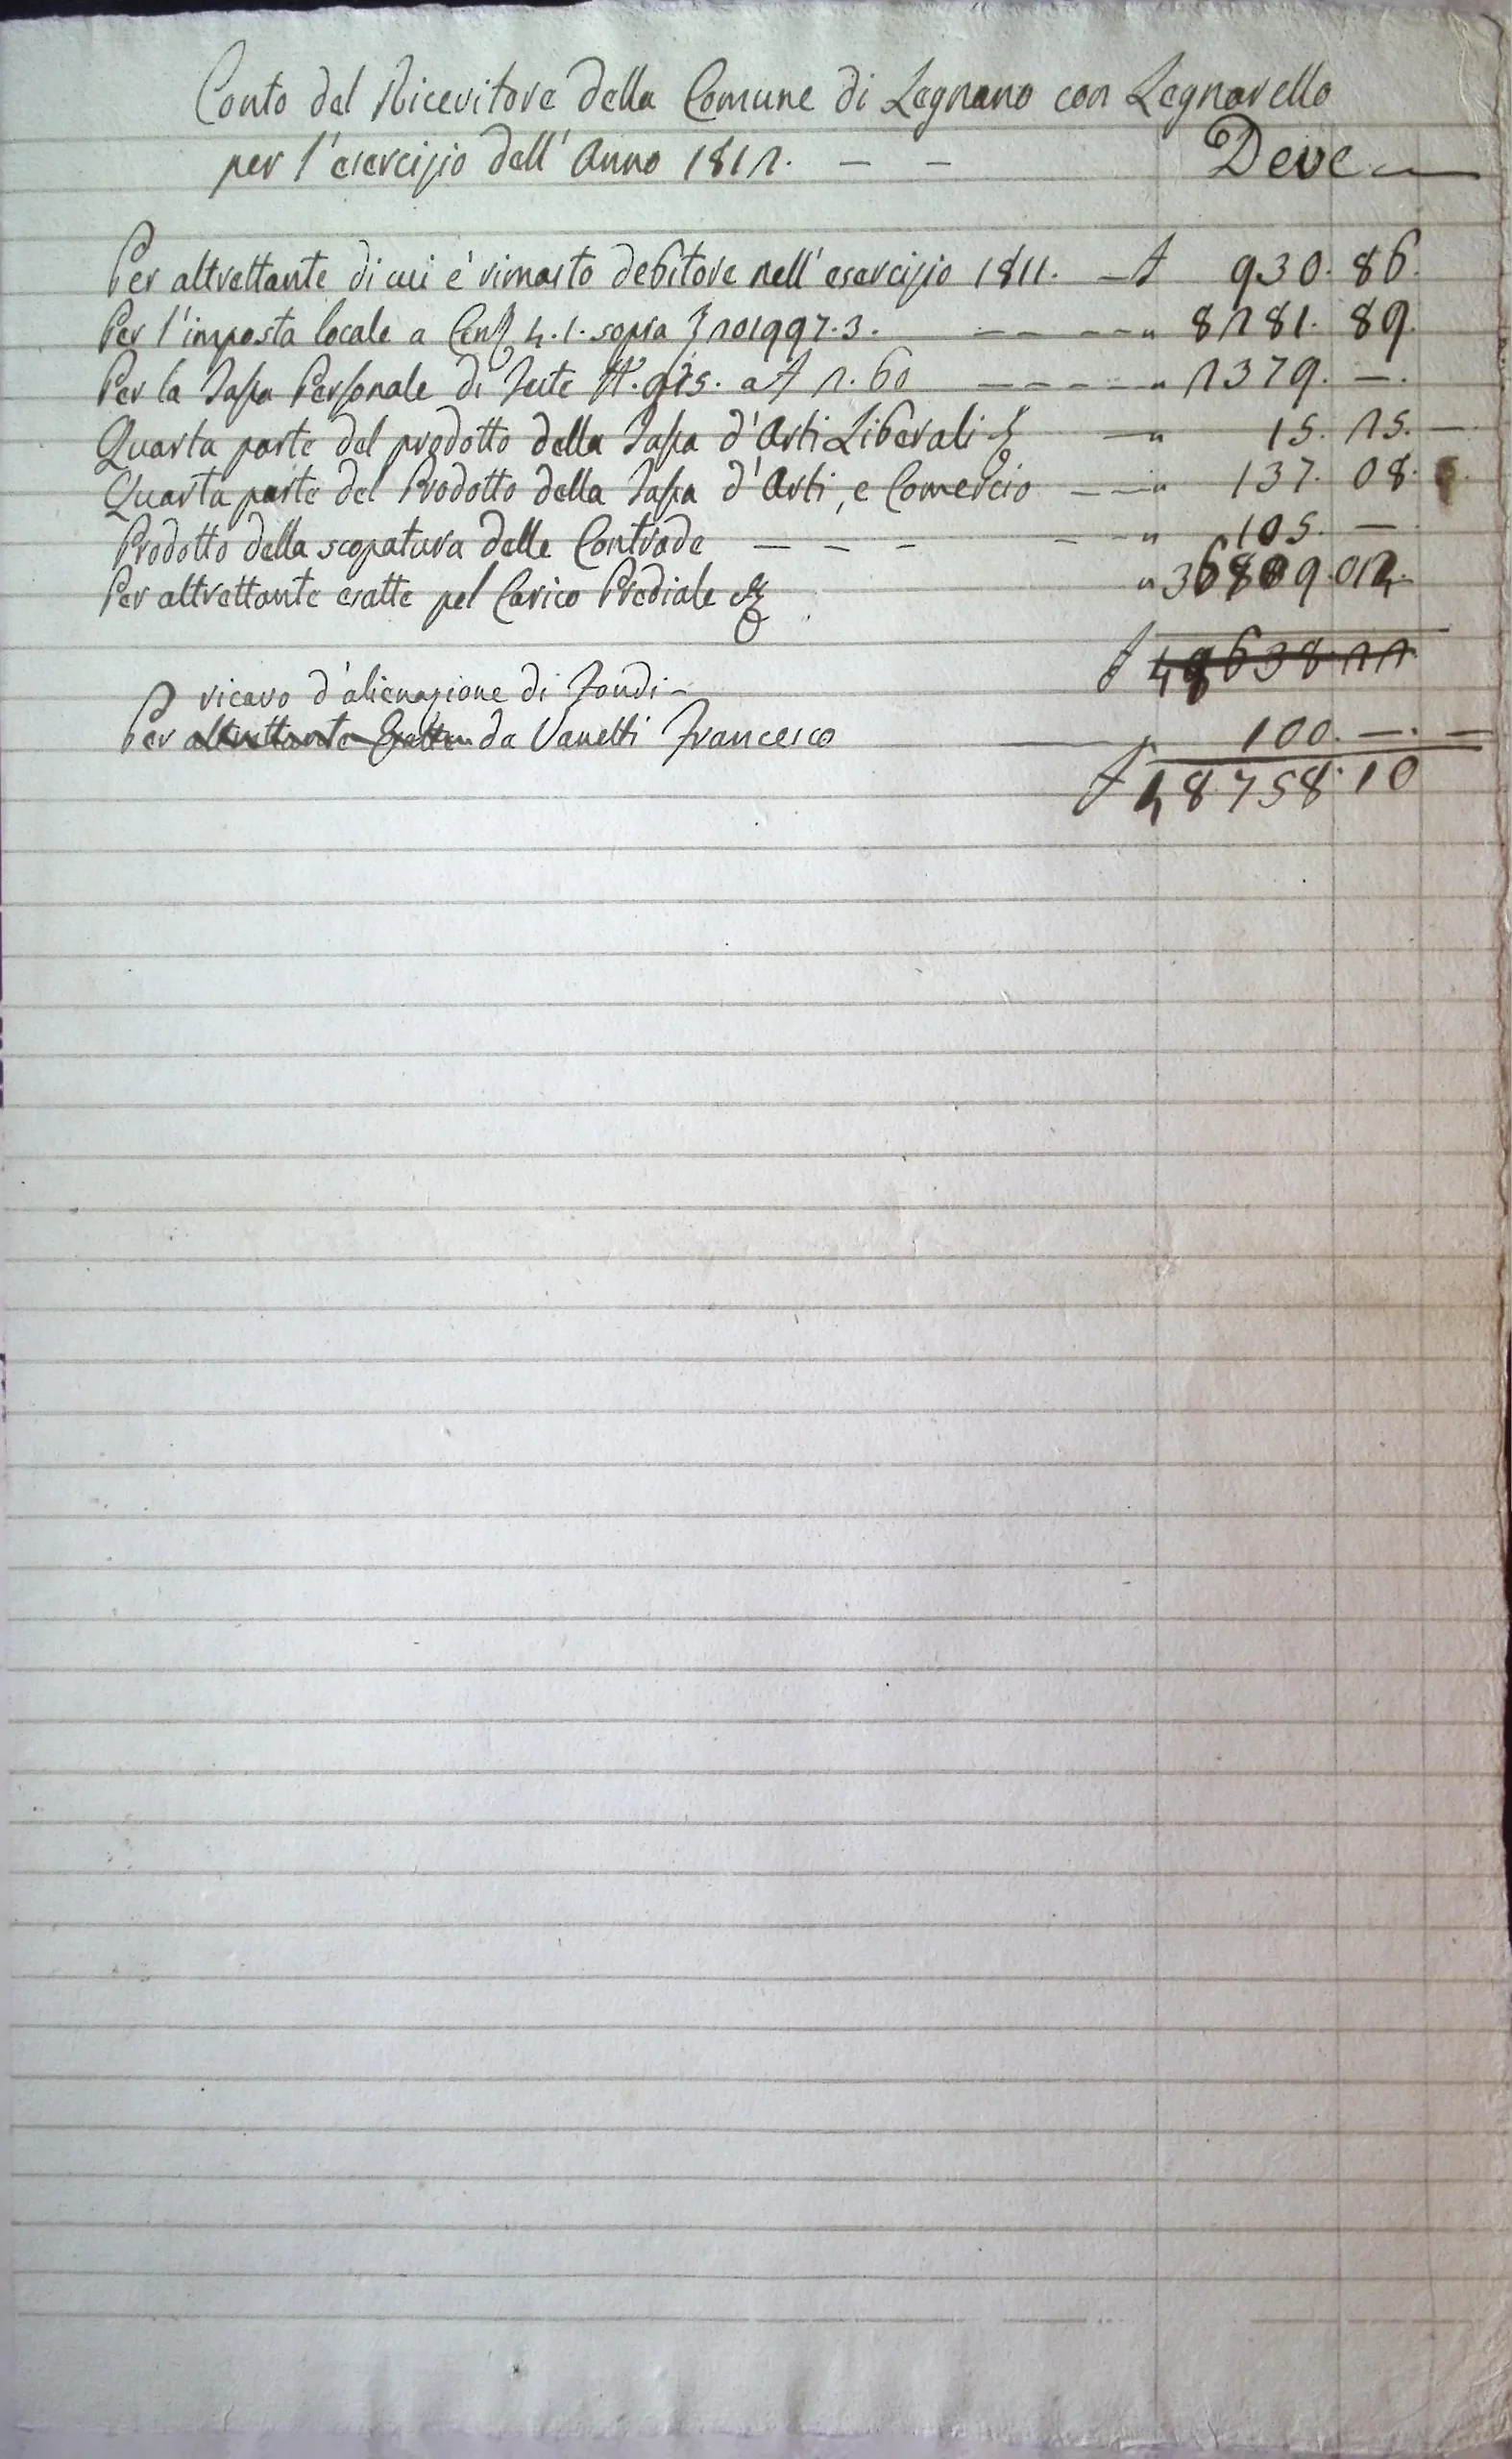 Conto del Ricevitore della Comune di Legnano con Legnarello
per l'esercizio dell'Anno 1812. — — Deve
Per altrettante di cui è rimasto debitore nell'esercizio 1811. — £ 930. 86.
Per l'imposta locale a Cent 4.1. sopra 201997.3. — — — — " 8281. 89.
Per la Tassa Personale di Teste N. 915. a £ 2.60 — — — — " 2379. —.
Quarta parte del prodotto della Tassa d'Arti Liberali — " 15. 25. —
Quarta parte del Prodotto della Tassa d'Arti, e Comercio — — " 137. 08.
Prodotto della scopatura delle Contrade — — — — — " 105. —
Per altrettante esatte pel Carico Prediale & " 36809.02.
£ 48638.22.
ricavo d'alienazione di Fondi —
Per altrettante Esatte da Vanetti Francesco — " 100. —. —
£ 48758.10